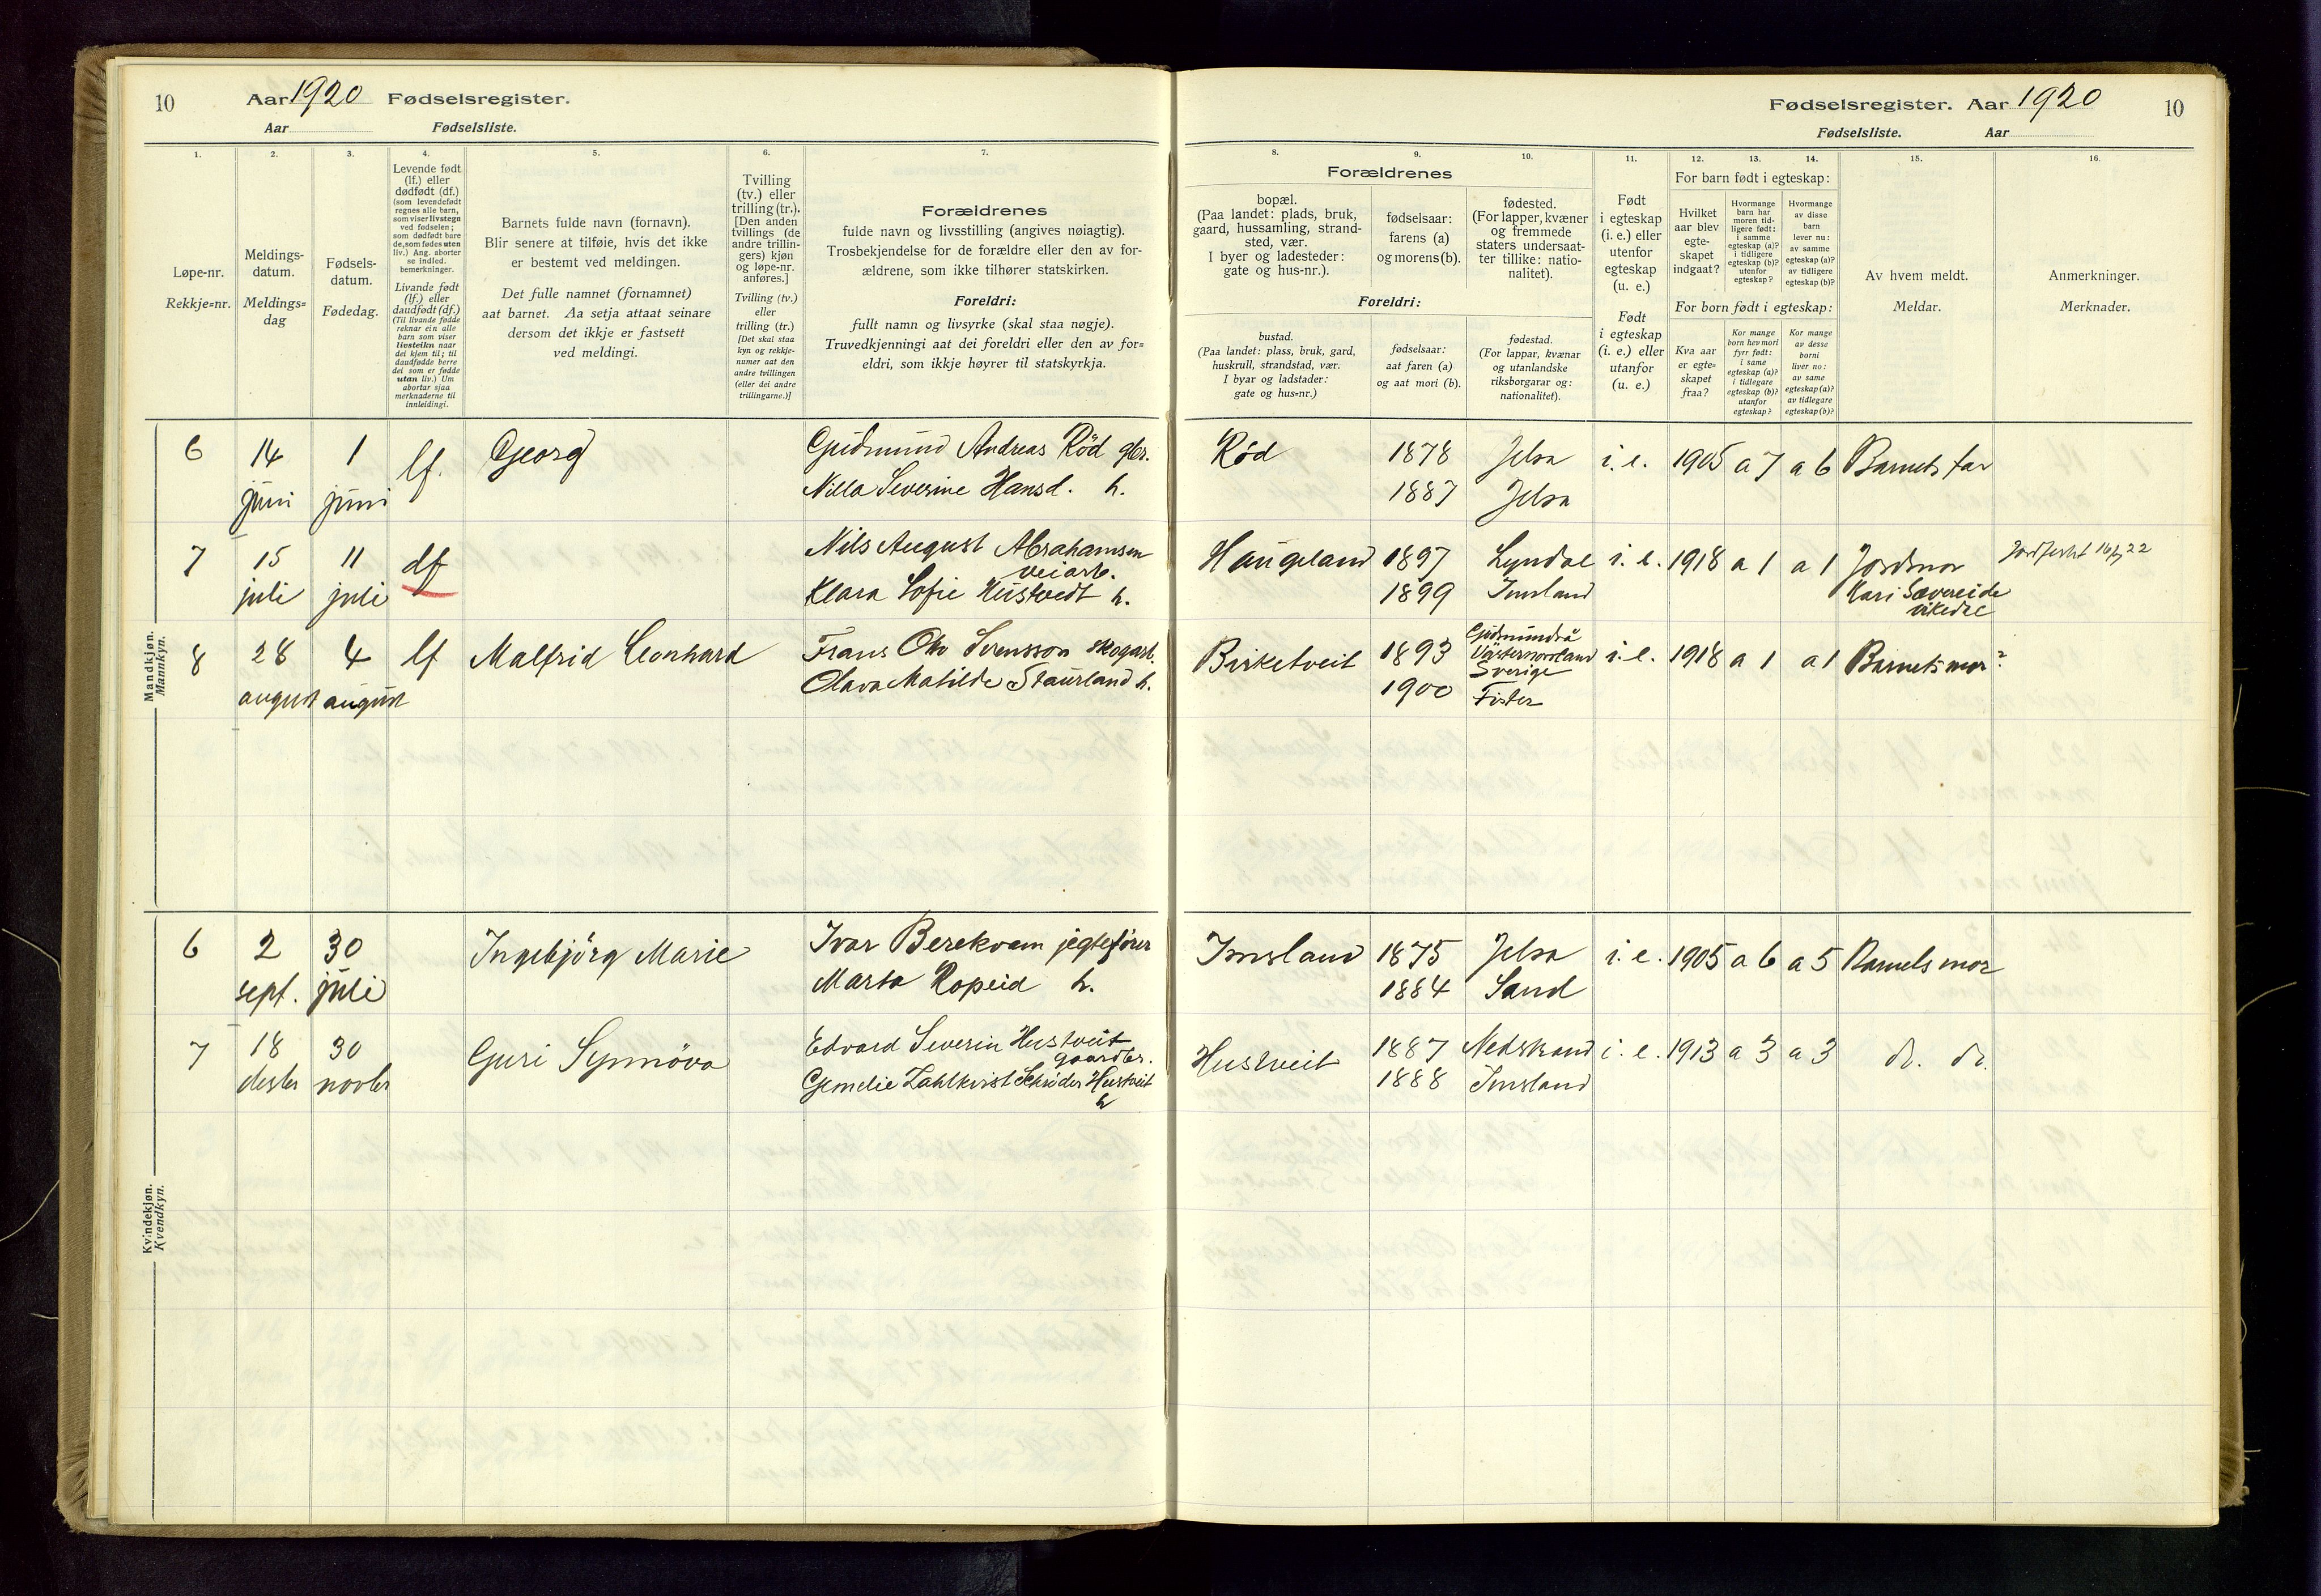 10 Aar 1920 Fødselsregister.
Aar Fødselsliste.
1.
Løpe-nr.
Rekkje=nr.
2.
Meldings-
datum.
Meldings=
dag
3.
Fødsels-
datum.
Fødedag.
4.
Levende født
(lf.) eller
dødfødt (df.)
(som levendefødt
regnes alle barn,
som viser livstegn
ved fødselen;
som dødfødt bare
de, som fødes uten
liv.) Ang. aborter
se indled.
bemerkninger.
Livande født
(lf.) eller
daudfødt (df.)
(Til livande fødde
reknar ein alle
barn som viser
livsteikn naar
dei kjem til; til
daudfødde berre
dei som er fødde
utan liv.) Um
abortar sjaa
merknaderne til
innleidingi.
5.
Barnets fulde navn (fornavn).
Blir senere at tilføie, hvis det ikke
er bestemt ved meldingen.
Det fulle namnet (fornamnet)
aat barnet. Aa setja attaat seinare
dersom det ikkje er fastsett
ved meldingi.
6.
Tvilling
(tv.) eller
trilling (tr.).
[Den anden
tvillings (de
andre trillin-
gers) kjøn
og løpe-nr.
anføres.]
Tvilling (tv.)
eller
trilling (tr.)
[Det skal staa
kyn og rekkje-
numer aat den
andre tvillingen
(eller dei andre
trillingarne.)]
7.
Forældrenes
fulde navn og livsstilling (angives nøiagtig).
Trosbekjendelse for de forældre eller den av for-
ældrene, som ikke tilhører statskirken.
Foreldri:
fullt namn og livsyrke (skal staa nøgje).
Truvedkjenningi aat dei foreldri eller den av for=
eldri, som ikkje høyrer til statskyrkja.
Mandkjøn.
Mannkyn.
6 14 1 lf. Georg Gudmund Andreas Röd gbr.
juni juni Nilla Severine Hansd. h.
7 15 11 df Nils August Abrahamsen
veiarb.
juli juli Klara Sofie Hustvedt h.
8 28 4 lf Malfrid Leonhard Frans Oto Svensson skogarb.
august august Olava Matilde Staurland h.
Kvindekjøn.
Kvendkyn.
6 2 30 Ingebjörg Marie Ivar Berekvam jegtefører
sept. juli Marta Ropeid h.
7 18 30 Guri Synnöva Edvard Severin Hustveit
gaardbr.
desbr novbr Gemelie Zahlkvist Schrøder Hustveit
h
Fødselsregister. Aar 1920 10
Fødselsliste. Aar
8.
Forældrenes
bopæl.
(Paa landet: plads, bruk,
gaard, hussamling, strand-
sted, vær.
I byer og ladesteder:
gate og hus-nr.).
Foreldri:
bustad.
(Paa landet: plass, bruk, gard,
huskrull, strandstad, vær.
I byar og ladstader:
gate og hus=nr.)
9.
fødselsaar:
farens (a)
og morens (b).
fødselsaar:
aat faren (a)
og aat mori (b).
10.
fødested.
(For lapper, kvæner
og fremmede
staters undersaat-
ter tillike: natio-
nalitet).
fødestad.
(For lappar, kvænar
og utanlandske
riksborgarar og:
nationalitet).
11.
Født
i egteskap
(i. e.) eller
utenfor
egteskap
(u. e.)
Født
i egteskap
(i. e.) eller
utanfor
(u. e.)
12. 13. 14.
For barn født i egteskap:
Hvilket
aar blev
egte-
skapet
indgaat?
Hvormange
barn har
moren tid-
ligere født:
i samme
egteskap (a)?
i tidligere
egteskap (b)?
utenfor
egteskap?
Hvormange
av disse
barn
lever nu:
av samme
egteskap (a)?
av tidligere
egteskap (b)?
For born født i egteskap:
Kva aar
er egte=
skapet
fraa?
Kor mange
born hev mori
fyrr født:
i same
egteskap (a)?
i tidlegare
egteskap (b)?
utanfor
egteskap?
Kor mange
av desse
borni
liver no:
av same
egteskap (a)?
av tidlegare
egteskap (b)?
15.
Av hvem meldt.
Meldar.
16.
Anmerkninger.
Merknader.
Röd 1878 Jelsa i. e. 1905 a 7 a 6 Barnets far
1887 Jelsa
Haugeland 1897 Lyndal i. e. 1918 a 1 a 1 Jordmor Jordfestet 16/7 22
1899 Imsland Kari Sævereide
Vikedre
Birketveit 1893 Gudmundrå
Västernorrland
Sverige i. e. 1918 a 1 a 1 Barnets mor?
1900 Fister
Imsland 1875 Jelsa i. e. 1905 a 6 a 5 Barnets mor
1884 Sand
Hustveit 1887 Nedstrand i. e. 1913 a 3 a 3 do. do.
1888 Imsland